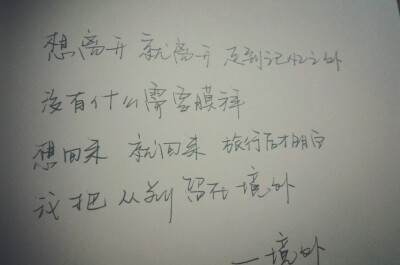 想离开 就离开 没到记忆之外
没有什么需要膜拜
想回来 就回来 旅行后才明白
我把从前留在境外
—境外